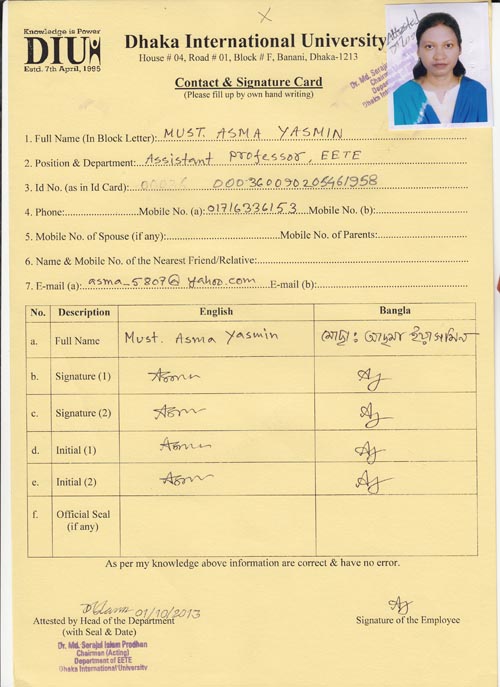 Knowledge is Power
DIU
Estd. 7th April, 1995
Dhaka International University
House # 04, Road # 01, Block # F, Banani, Dhaka-1213
Contact & Signature Card
(Please fill up by own hand writing)
Attested
Dr. Md. Seraj
Chairm
Department
Dhaka Internat
1. Full Name (In Block Letter): MUST. ASMA YASMIN
2. Position & Department: Assistant Professor, EETE
3. Id No. (as in Id Card): 000360090205461958
4. Phone: Mobile No. (a): 01716336153 Mobile No. (b):
5. Mobile No. of Spouse (if any): Mobile No. of Parents:
6. Name & Mobile No. of the Nearest Friend/Relative:
7. E-mail (a): asma_5807@yahoo.com E-mail (b):
No. Description English Bangla
a. Full Name Must. Asma Yasmin মোছাঃ আছমা ইয়াসমিন
b. Signature (1)
c. Signature (2)
d. Initial (1)
e. Initial (2)
f. Official Seal
(if any)
As per my knowledge above information are correct & have no error.
01/10/2013
Attested by Head of the Department
(with Seal & Date)
Signature of the Employee
Dr. Md. Serajul Islam Prodhan
Chairman (Acting)
Department of EETE
Dhaka International University